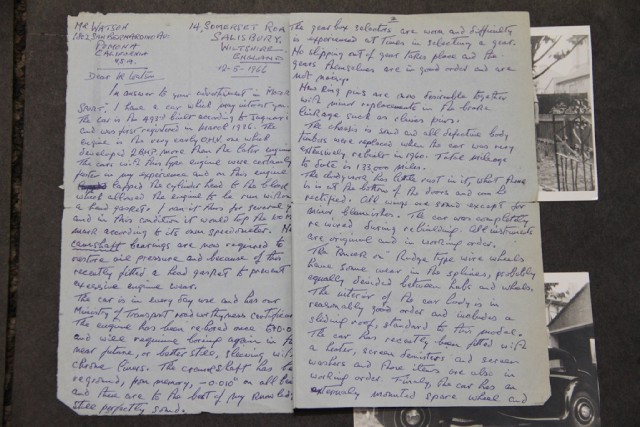 Mr Watson
1202, San Bernardino Av.
Pomona
California
U.S.A.
14, Somerset Road
Salisbury,
Wiltshire
England
12-5-1966
Dear Mr Watson
In answer to your advertisment in Motor
Sport. I have a car which may interest you.
The car is No 495 built according to Jaguars
and was first registered in March 1936. The
engine is the very early one which
developed 2 BHP more than the later engine.
The cars with this type engine were certainly
faster in my experience and on this engine
lapped the cylinder head to the block
which allowed the engine to be run without
a head gasket. I ran it thus for
and in this condition it would top the
mark according to its own speedometer. New
camshaft bearings are now required to
restore oil pressure and because of this
recently fitted a head gasket to prevent
excessive engine wear.
The car is in every day use and has our
Ministry of Transport roadworthyness certificate
The engine has been rebored once
and will require boring again in the
near future, or better still, sleeving with
chrome liners. The crankshaft has been
reground, from memory, -0.010" on all
and these are to the best of my knowledge
still perfectly sound.
2
The gear box selectors are worn and difficulty
is experienced at times in selecting a gear.
No slipping out of gear takes place and the
gears themselves are in good order and are
not noisy.
New king pins are now desirable together
with minor replacements in the brake
linkage such as clevis pins.
The chassis is sound and all defective body
timbers were replaced when the car was very
extensively rebuilt in 1960. Total mileage
to date is 133000 miles.
The body work has little rust in it, what there
is is at the bottom of the doors and can be
rectified. All wings are sound except for
minor blemishes. The car was completely
re wired during rebuilding. All instruments
are original and in working order.
The Rudge type wire wheels
have some wear in the splines, probably
equally divided between hubs and wheels.
The interior of the car body is in
reasonably good order and includes a
sliding roof, standard to this model.
The car has recently been fitted with
a heater, screen demisters and screen
washers and these items are also in
working order. Finally, the car has an
externally mounted spare wheel and